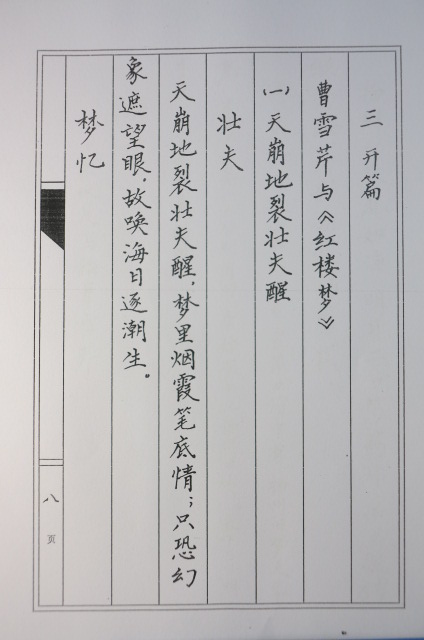 三 开篇
曹雪芹与《红楼梦》
(一)天崩地裂壮夫醒
壮夫
天崩地裂壮夫醒，梦里烟霞笔底情；只恐幻
象遮望眼，故唤海日逐潮生。
梦忆
八页